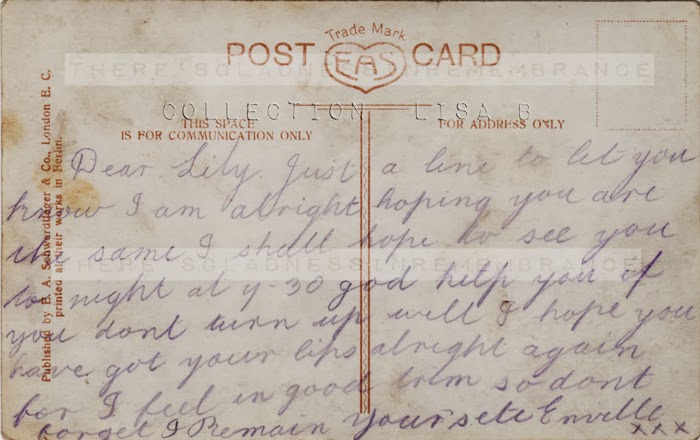 Trade Mark
POST EAS CARD
THERE'SGLADNESSINREMEMBRANCE
COLLECTION LISA B
THIS SPACE
IS FOR COMMUNICATION ONLY
FOR ADDRESS ONLY
Published by E. A. Schwerdtfeger & Co., London E. C.
printed at their works in Berlin.
Dear Lily. Just a line to let you
know I am alright hoping you are
the same I shall hope to see you
THERE'SGLADNESSINREMEMBRANCE
to night at 7-30 god help you if
you dont turn up well I hope you
have got your lips alright again
for I feel in good trim so dont
forget I Remain Yours etc Enville
x x x